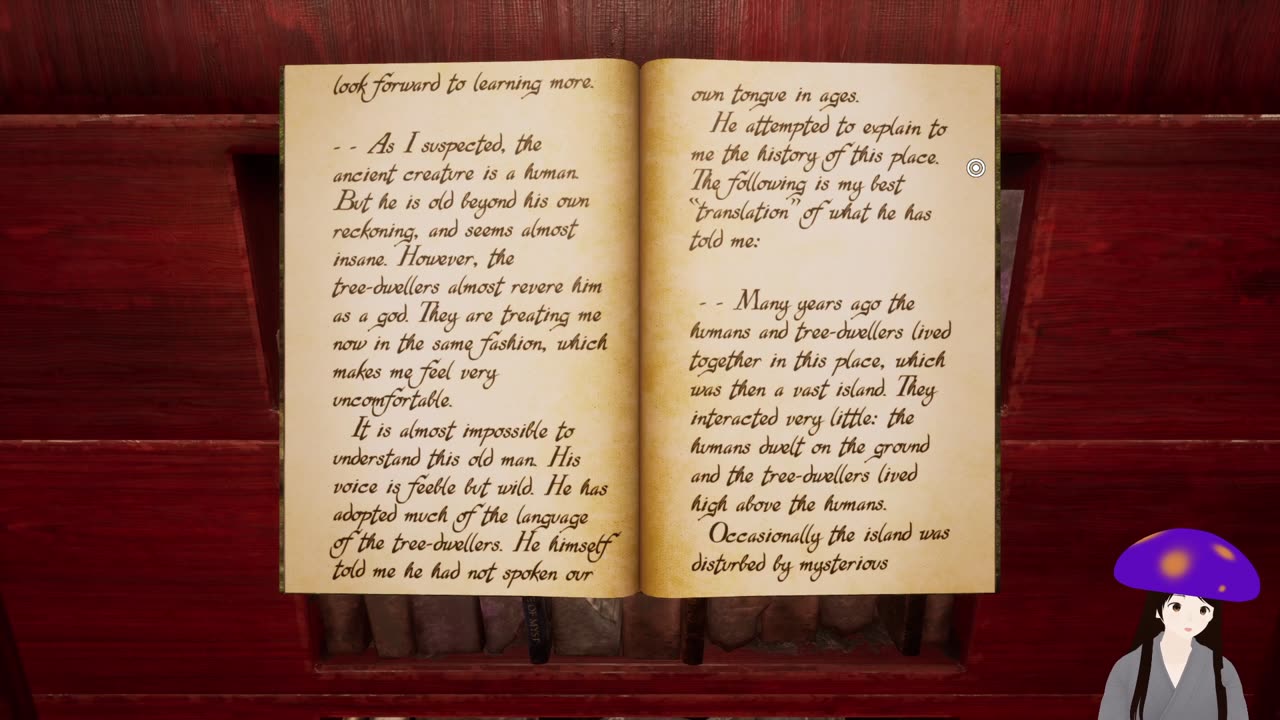 look forward to learning more.
- - As I suspected, the
ancient creature is a human.
But he is old beyond his own
reckoning, and seems almost
insane. However, the
tree-dwellers almost revere him
as a god. They are treating me
now in the same fashion, which
makes me feel very
uncomfortable.
It is almost impossible to
understand this old man. His
voice is feeble but wild. He has
adopted much of the language
of the tree-dwellers. He himself
told me he had not spoken our
own tongue in ages.
He attempted to explain to
me the history of this place.
The following is my best
“translation” of what he has
told me:
- - Many years ago the
humans and tree-dwellers lived
together in this place, which
was then a vast island. They
interacted very little: the
humans dwelt on the ground
and the tree-dwellers lived
high above the humans.
Occasionally the island was
disturbed by mysterious
OF MYST